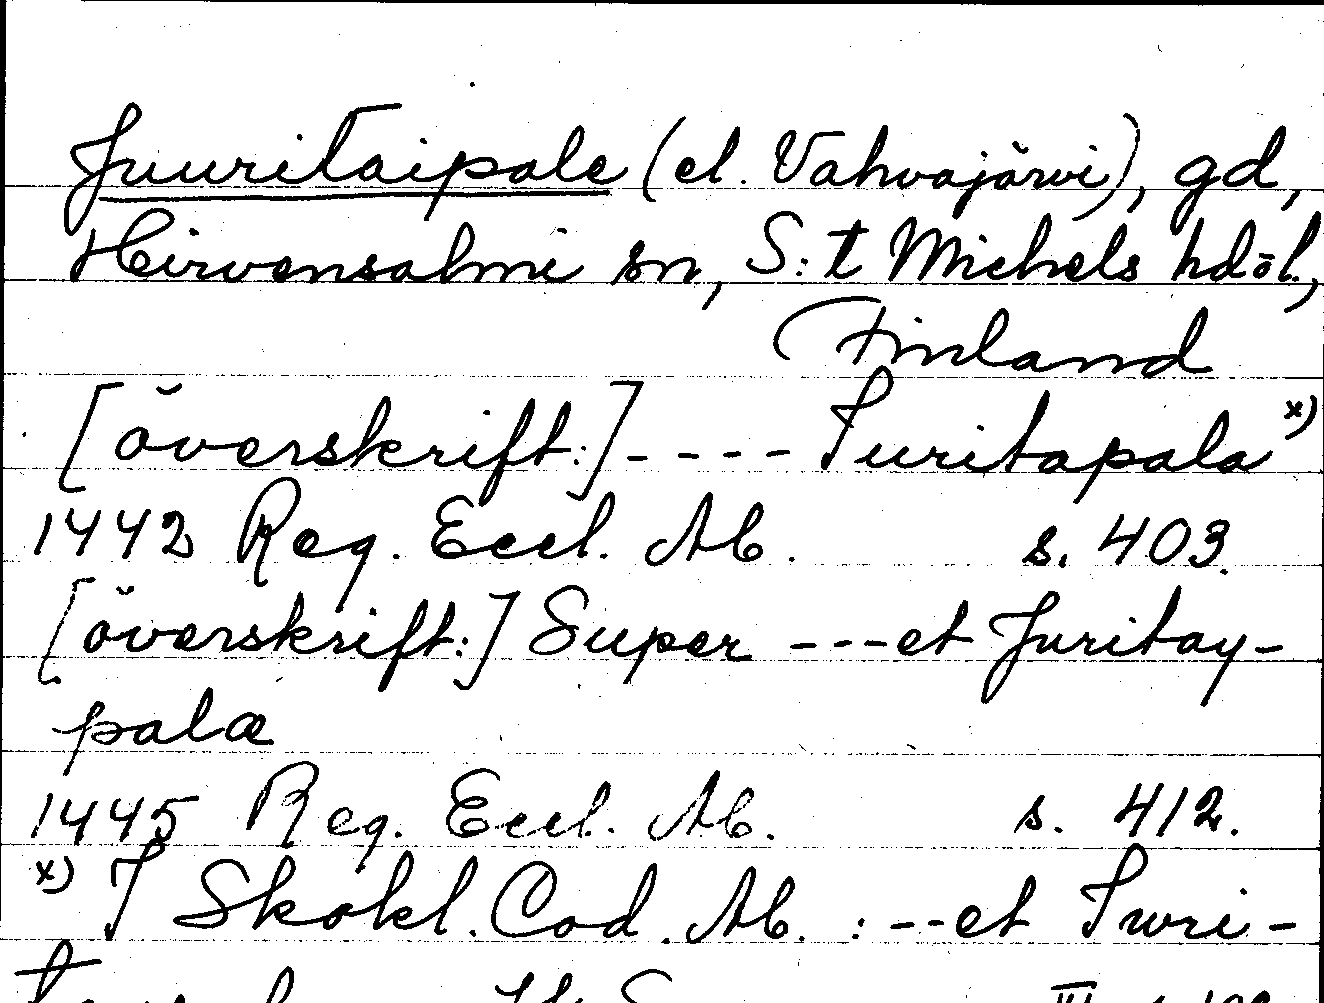 Juuritaipale (el. Vahvajärvi), gd,
Hirvensalmi sn, S:t Michels hdöl.,
Finland
[överskrift:] - - - - Iuritapala x)
1442 Reg. Eccl. Ab. s. 403.
[överskrift:] Super - - - et Juritay-
pala
1445 Reg. Eccl. Ab. s. 412.
x) I Skokl. Cod. Ab. : - - et Iwri-